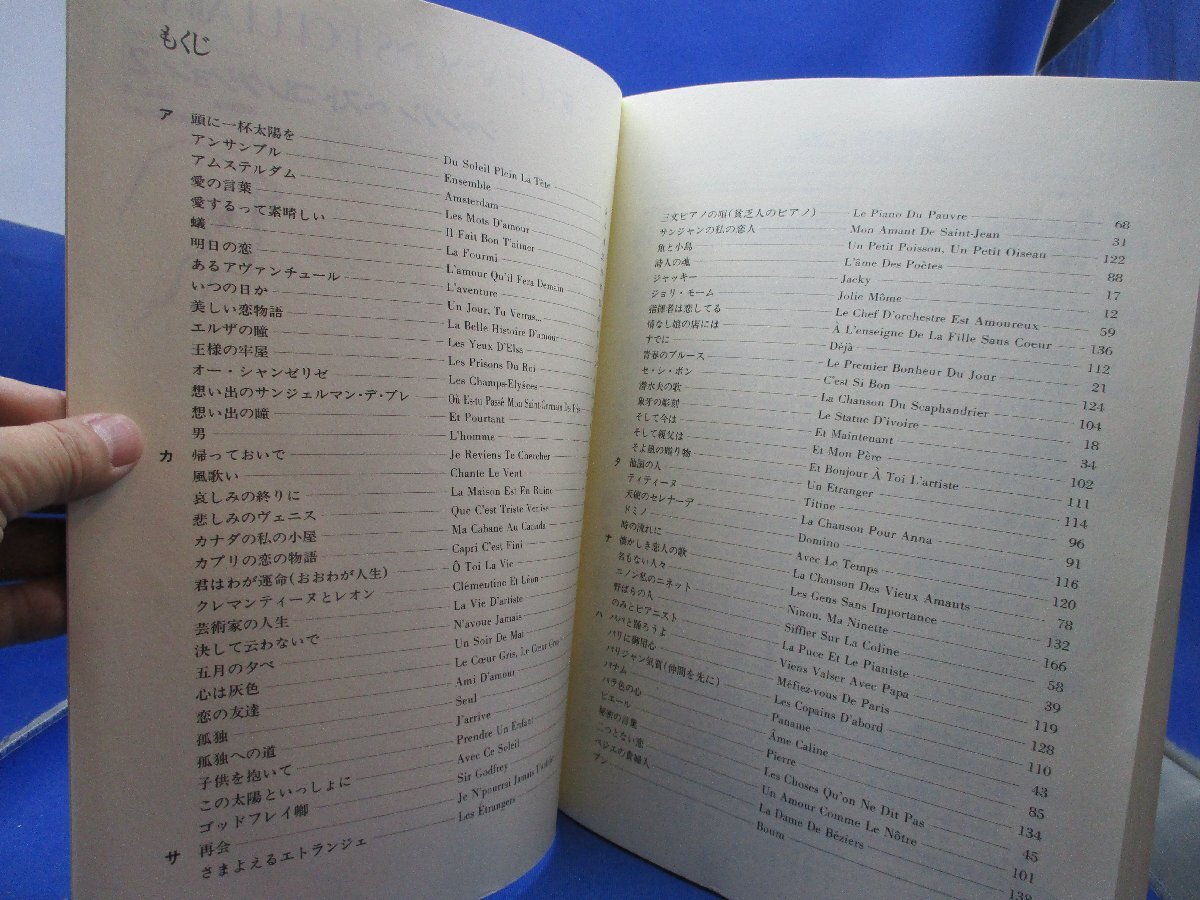 もくじ
ア 頭に一杯太陽を Du Soleil Plein La Tête
アンサンブル Ensemble
アムステルダム Amsterdam
愛の言葉 Les Mots D'amour
愛するって素晴しい Il Fait Bon T'aimer
蟻 La Fourmi
明日の恋 L'amour Qu'il Fera Demain
あるアヴァンチュール L'aventure
いつの日か Un Jour, Tu Verras...
美しい恋物語 La Belle Histoire D'amour
エルザの瞳 Les Yeux D'Elsa
王様の牢屋 Les Prisons Du Roi
オー・シャンゼリゼ Les Champs-Elysées
想い出のサンジェルマン・デ・プレ Où Es-tu Passé Mon Saint-Germain Des Prés
想い出の瞳 Et Pourtant
男 L'homme
カ 帰っておいで Je Reviens Te Chercher
風歌い Chante Le Vent
哀しみの終りに La Maison Est En Ruine
悲しみのヴェニス Que C'est Triste Venise
カナダの私の小屋 Ma Cabane Au Canada
カプリの恋の物語 Capri C'est Fini
君はわが運命(おおわが人生) Ô Toi La Vie
クレマンティーヌとレオン Clémentine Et Léon
芸術家の人生 La Vie D'artiste
決して云わないで N'avoue Jamais
五月の夕べ Un Soir De Mai
心は灰色 Le Cœur Gris, Le Cœur Gros
恋の友達 Ami D'amour
孤独 Seul
孤独への道 J'arrive
子供を抱いて Prendre Un Enfant
この太陽といっしょに Avec Ce Soleil
ゴッドフレイ卿 Sir Godfrey
サ 再会 Je N'pourrai Jamais T'oublier
さまよえるエトランジェ Les Étrangers
三文ピアノの唄(貧乏人のピアノ) Le Piano Du Pauvre 68
サンジャンの私の恋人 Mon Amant De Saint-Jean 31
魚と小鳥 Un Petit Poisson, Un Petit Oiseau 122
詩人の魂 L'âme Des Poètes 88
ジャッキー Jacky 17
ジョリ・モーム Jolie Môme 12
指揮者は恋してる Le Chef D'orchestre Est Amoureux 59
情なし娘の店には À L'enseigne De La Fille Sans Coeur 136
すでに Déjà 112
青春のブルース Le Premier Bonheur Du Jour 21
セ・シ・ボン C'est Si Bon 124
潜水夫の歌 La Chanson Du Scaphandrier 104
象牙の彫刻 Le Statue D'ivoire 18
そして今は Et Maintenant 34
そして親父は Et Mon Père 102
そよ風の贈り物 Et Bonjour À Toi L'artiste 111
タ 他国の人 Un Etranger 114
ティティーヌ Titine 96
天使のセレナーデ La Chanson Pour Anna 91
ドミノ Domino 116
時の流れに Avec Le Temps 120
ナ 懐かしき恋人の歌 La Chanson Des Vieux Amants 78
名もない人々 Les Gens Sans Importance 132
ニノン私のニネット Ninon, Ma Ninette 166
野ばらの人 Siffler Sur La Coline 58
のみとピアニスト La Puce Et Le Pianiste 39
ハ パパと踊ろうよ Viens Valser Avec Papa 119
パリに御用心 Méfiez-vous De Paris 128
パリジャン気質(仲間を先に) Les Copains D'abord 110
パナム Paname 43
バラ色の心 Âme Caline 85
ピエール Pierre 134
秘密の言葉 Les Choses Qu'on Ne Dit Pas 45
二つとない恋 Un Amour Comme Le Nôtre 101
ベジエの貴婦人 La Dame De Béziers 138
ブン Boum